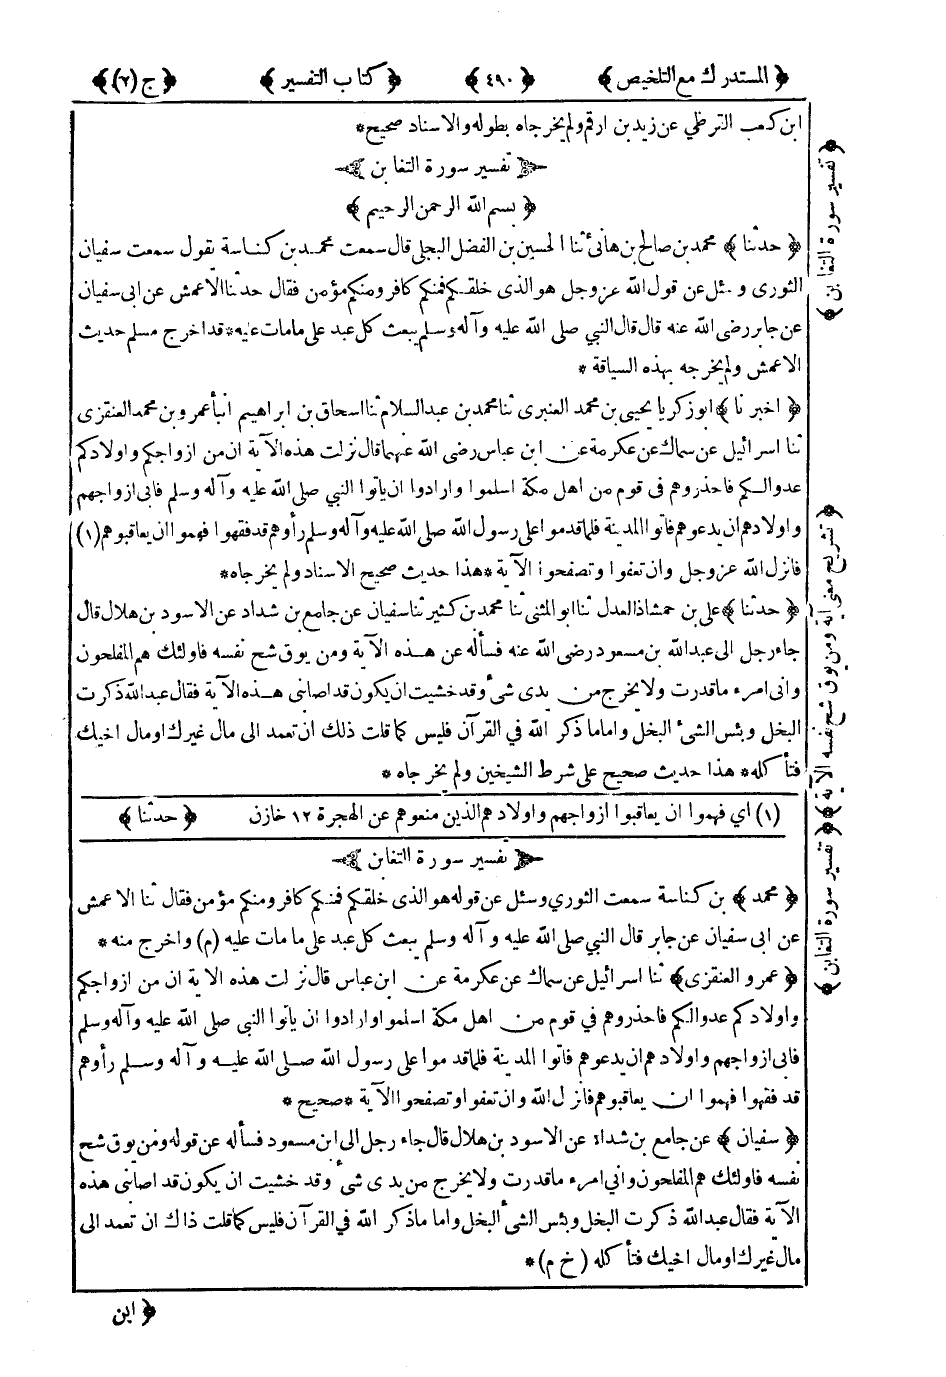 ﴿ المستدرك مع التلخيص ﴾ ﴿ ٤٩٠ ﴾ ﴿ كتاب التفسير ﴾ ﴿ ج (٢) ﴾
ابن كعب القرظي عن زيد بن ارقم ولم يخرجاه بطوله والاسناد صحيح*
تفسير سورة التغابن
﴿ بسم الله الرحمن الرحيم ﴾
﴿ حدثنا ﴾ محمد بن صالح بن هانئ ثنا الحسين بن الفضل البجلي قال سمعت محمد بن كناسة يقول سمعت سفيان
الثورى وسئل عن قول الله عز وجل هو الذى خلقكم فمنكم كافر ومنكم مؤمن فقال حدثنا الاعمش عن ابى سفيان
عن جابر رضى الله عنه قال قال النبي صلى الله عليه وآله وسلم يبعث كل عبد على ما مات عليه*قد اخرج مسلم حديث
الاعمش ولم يخرجه بهذه السياقة *
﴿ اخبرنا ﴾ ابو زكريا يحيى بن محمد العنبرى ثنا محمد بن عبد السلام ثنا اسحاق بن ابراهيم انبأ عمرو بن محمد العنقزى
ثنا اسرائيل عن سماك عن عكرمة عن ابن عباس رضى الله عنهما قال نزلت هذه الآية ان من ازواجكم واولادكم
عدوا لكم فاحذروهم فى قوم من اهل مكة اسلموا وارادوا ان يأتوا النبي صلى الله عليه وآله وسلم فابى ازواجهم
واولادهم ان يدعوهم فأتوا المدينة فلما قدموا على رسول الله صلى الله عليه وآله وسلم رأوهم قد فقهوا فهموا ان يعاقبوهم (١)
فانزل الله عز وجل وان تعفوا وتصفحوا الآية *هذا حديث صحيح الاسناد ولم يخرجاه*
﴿ حدثنا ﴾ على بن حمشاذ العدل ثنا ابو المثنى ثنا محمد بن كثير ثنا سفيان عن جامع بن شداد عن الاسود بن هلال قال
جاء رجل الى عبد الله بن مسعود رضى الله عنه فسأله عن هذه الآية ومن يوق شح نفسه فاولئك هم المفلحون
وانى امرء ما قدرت ولا يخرج من يدى شئ وقد خشيت ان يكون قد اصابنى هذه الآية فقال عبد الله ذكرت
البخل وبئس الشئ البخل واما ما ذكر الله في القرآن فليس كما قلت ذلك ان تعمد الى مال غيرك او مال اخيك
فتأكله* هذا حديث صحيح على شرط الشيخين ولم يخرجاه *
(١) اي فهموا ان يعاقبوا ازواجهم واولادهم الذين منعوهم عن الهجرة ١٢ خازن ﴿ حدثنا ﴾
تفسير سورة التغابن
﴿ محمد ﴾ بن كناسة سمعت الثوري وسئل عن قوله هو الذى خلقكم فمنكم كافر ومنكم مؤمن فقال ثنا الاعمش
عن ابى سفيان عن جابر قال النبي صلى الله عليه وآله وسلم يبعث كل عبد على ما مات عليه (م) واخرج منه *
﴿ عمرو العنقزى ﴾ ثنا اسرائيل عن سماك عن عكرمة عن ابن عباس قال نزلت هذه الآية ان من ازواجكم
واولادكم عدوا لكم فاحذروهم في قوم من اهل مكة اسلموا وارادوا ان يأتوا النبى صلى الله عليه وآله وسلم
فابى ازواجهم واولادهم ان يدعوهم فأتوا المدينة فلما قدموا على رسول الله صلى الله عليه وآله وسلم رأوهم
قد فقهوا فهموا ان يعاقبوهم فانزل الله وان تعفوا وتصفحوا الآية *صحيح *
﴿ سفيان ﴾ عن جامع بن شداد عن الاسود بن هلال قال جاء رجل الى ابن مسعود فسأله عن قوله ومن يوق شح
نفسه فاولئك هم المفلحون واني امرء ما قدرت ولا يخرج من يدى شئ وقد خشيت ان يكون قد اصابنى هذه
الآية فقال عبد الله ذكرت البخل وبئس الشئ البخل واما ما ذكر الله في القرآن فليس كما قلت ذاك ان تعمد الى
مال غيرك او مال اخيك فتأكله (خ م)*
﴿ ابن
﴿ تفسير سورة التغابن ﴾
﴿ تشريح معنى آية ومن يوق شح نفسه الآية ﴾
﴿ تفسير سورة التغابن ﴾